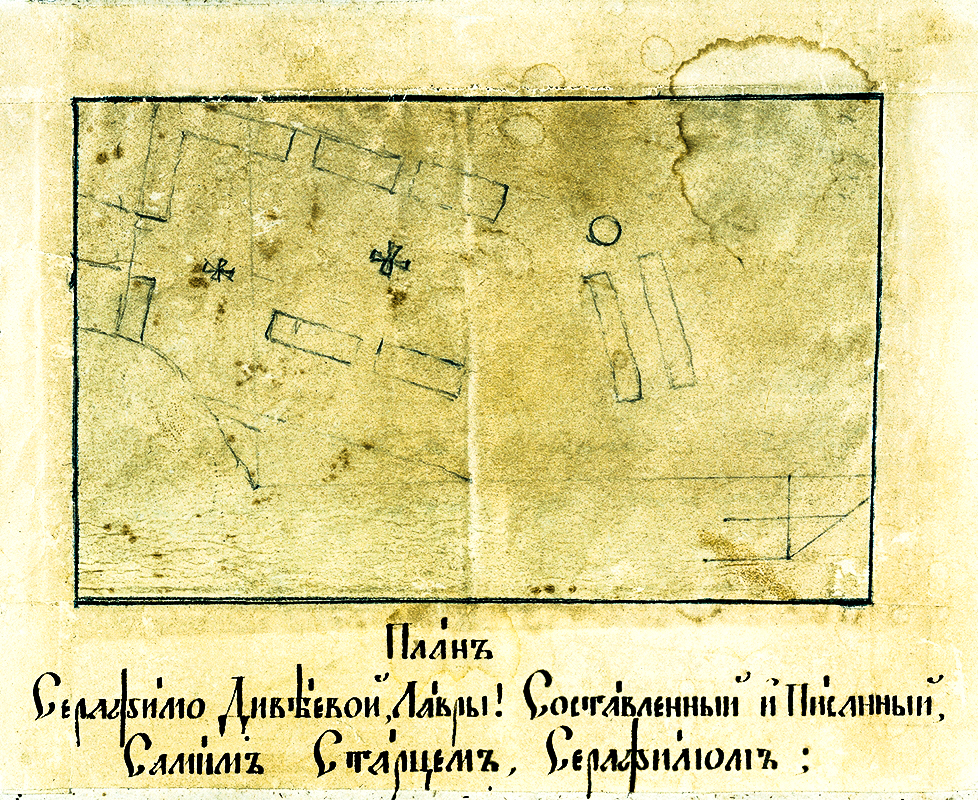 Пла́нъ
Серафи́мо Дивѣ́евой, Ла́вры! Соста́вленный и҆ Пи́санный,
Сами́мъ Ста́рцемъ, Серафи́момъ ;